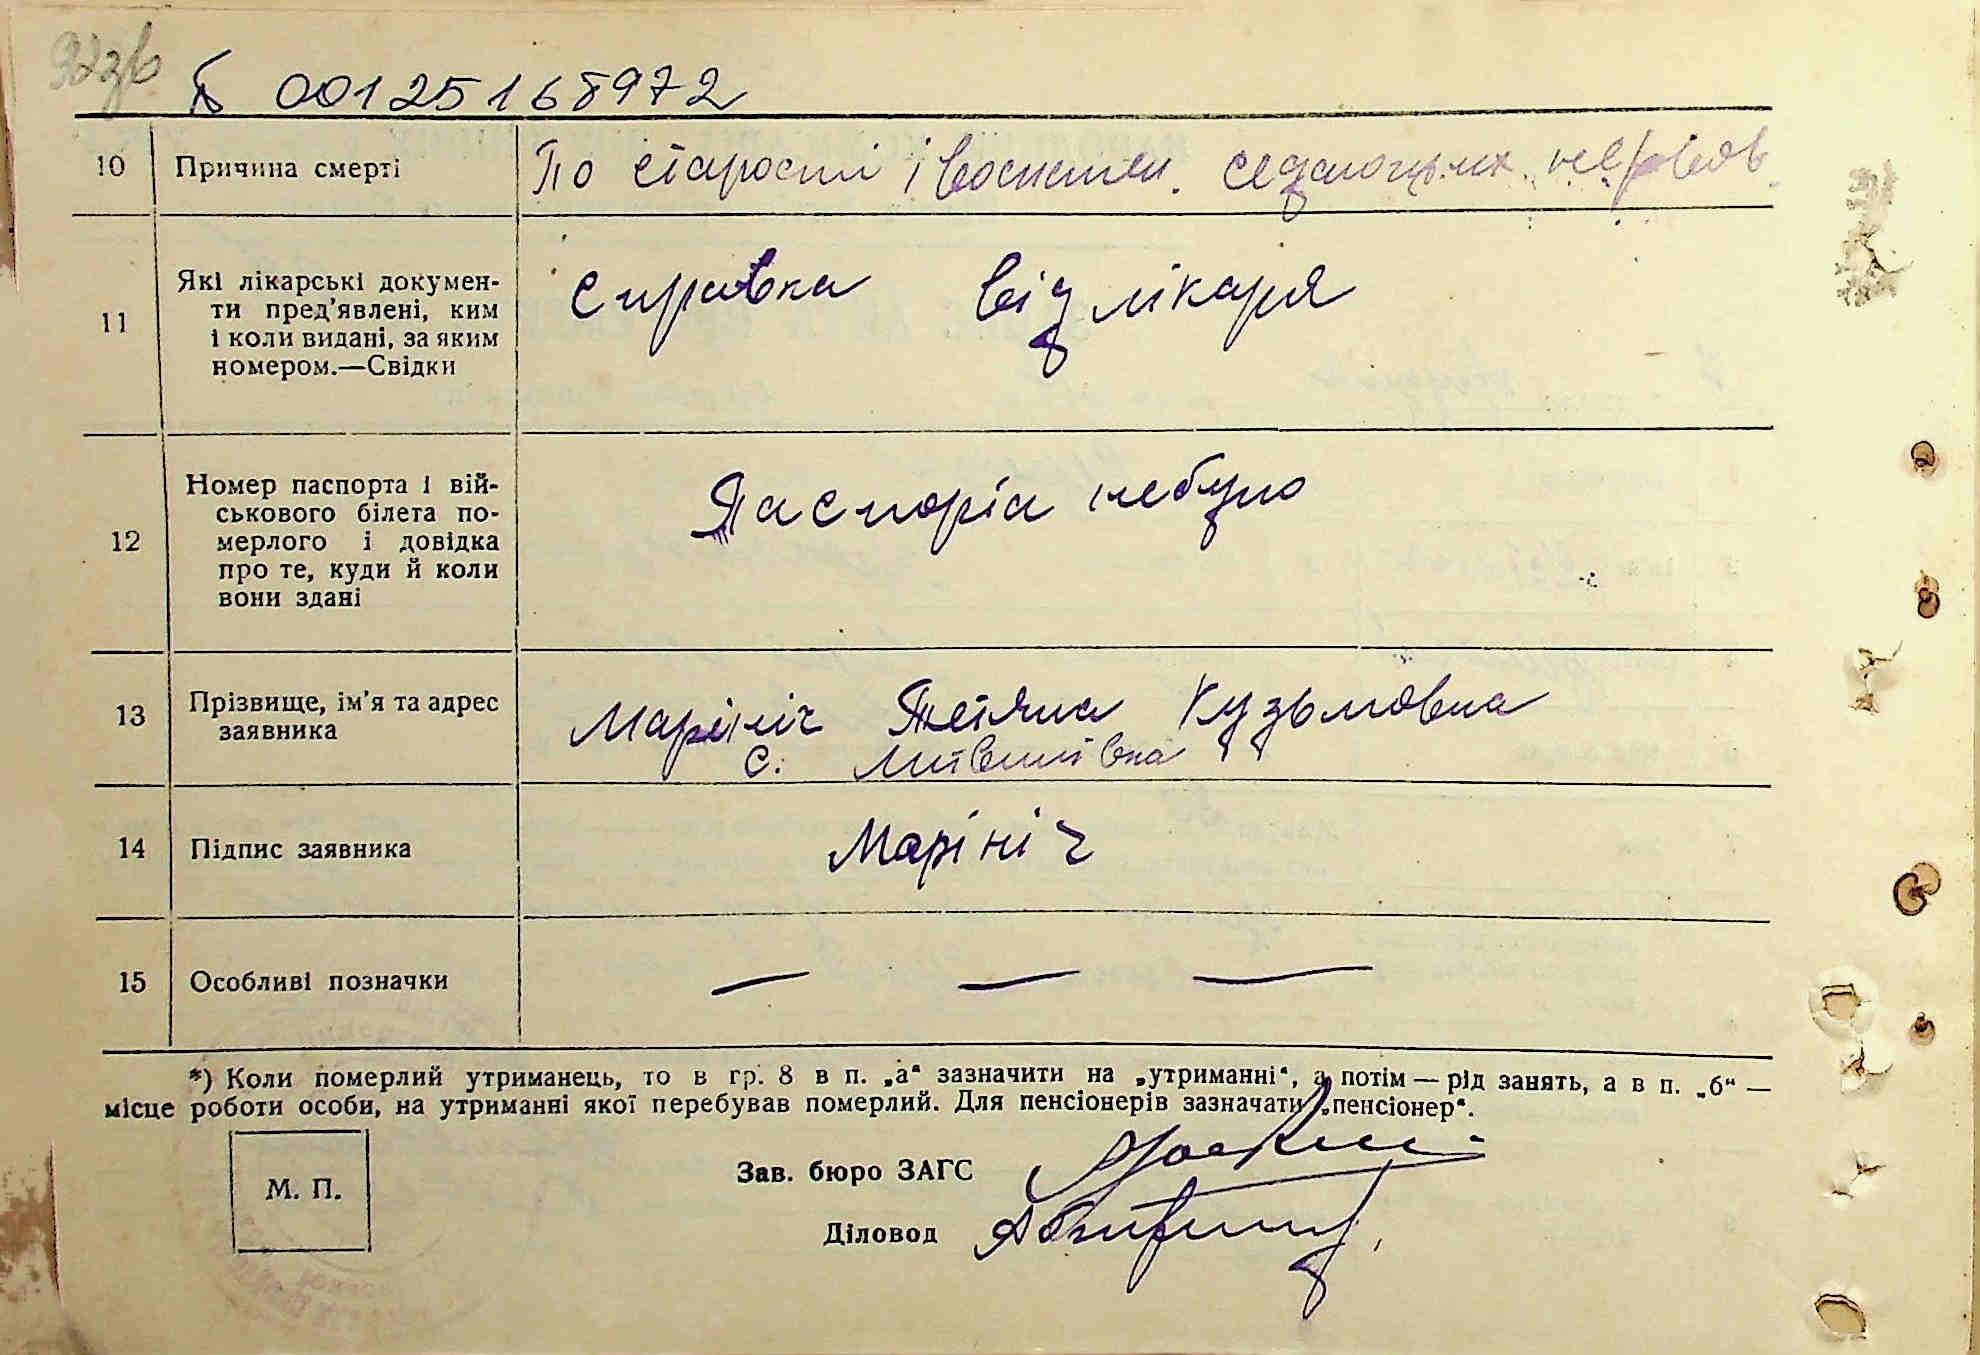 00125168972
10 Причина смерті По старості і воспален. седалощных нервов.
11 Які лікарські докумен-
ти пред'явлені, ким
і коли видані, за яким
номером.—Свідки
справка від лікаря
12 Номер паспорта і вій-
ськового білета по-
мерлого і довідка
про те, куди й коли
вони здані
Паспорта небуло
13 Прізвище, ім'я та адрес
заявника
Марініч Тетяна Кузьмовна
с. Литвинівка
14 Підпис заявника Марініч
15 Особливі позначки — — —
*) Коли померлий утриманець, то в гр. 8 в п. „а“ зазначити на „утриманні“, а потім — рід занять, а в п. „б“ —
місце роботи особи, на утриманні якої перебував померлий. Для пенсіонерів зазначати „пенсіонер“.
Зав. бюро ЗАГС
М. П.
Діловод